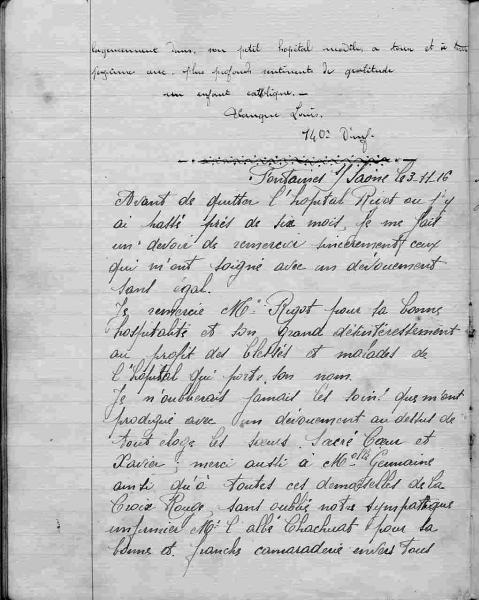 dans son petit hôpital modèle, a tour et à
avec plus profonds sentiments de gratitude
un enfant catholique. —
Louis.
140e d'inf.
Fontaines s/ Saône le 3-11-16
Avant de quitter l'hôpital Rigot ou j'y
ai passé près de six mois, je me fait
un devoir de remercier sincèrement ceux
qui m'ont soigné avec un dévouement
sans égal.
Je remercie Mr Rigot pour sa bonne
hospitalité et son grand désintéressement
au profit des blessés et malades de
l'hôpital qui porte son nom.
Je n'oublierais jamais les soins que m'ont
prodigué avec un dévouement au dessus de
tout éloge les sœurs Sacré Cœur et
Xavier, merci aussi à Melle Germaine
ainsi qu'à toutes ces demoiselles de la
Croix Rouge, sans oublié notre sympathique
infirmier Mr l'abbé Chachuat pour sa
bonne et franche camaraderie envers tous